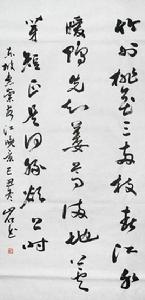 竹外桃花三两枝春江水
暖鴨先知蔞蒿满地蘆
芽短正是河豚欲上时
東坡惠崇春江晚景己丑